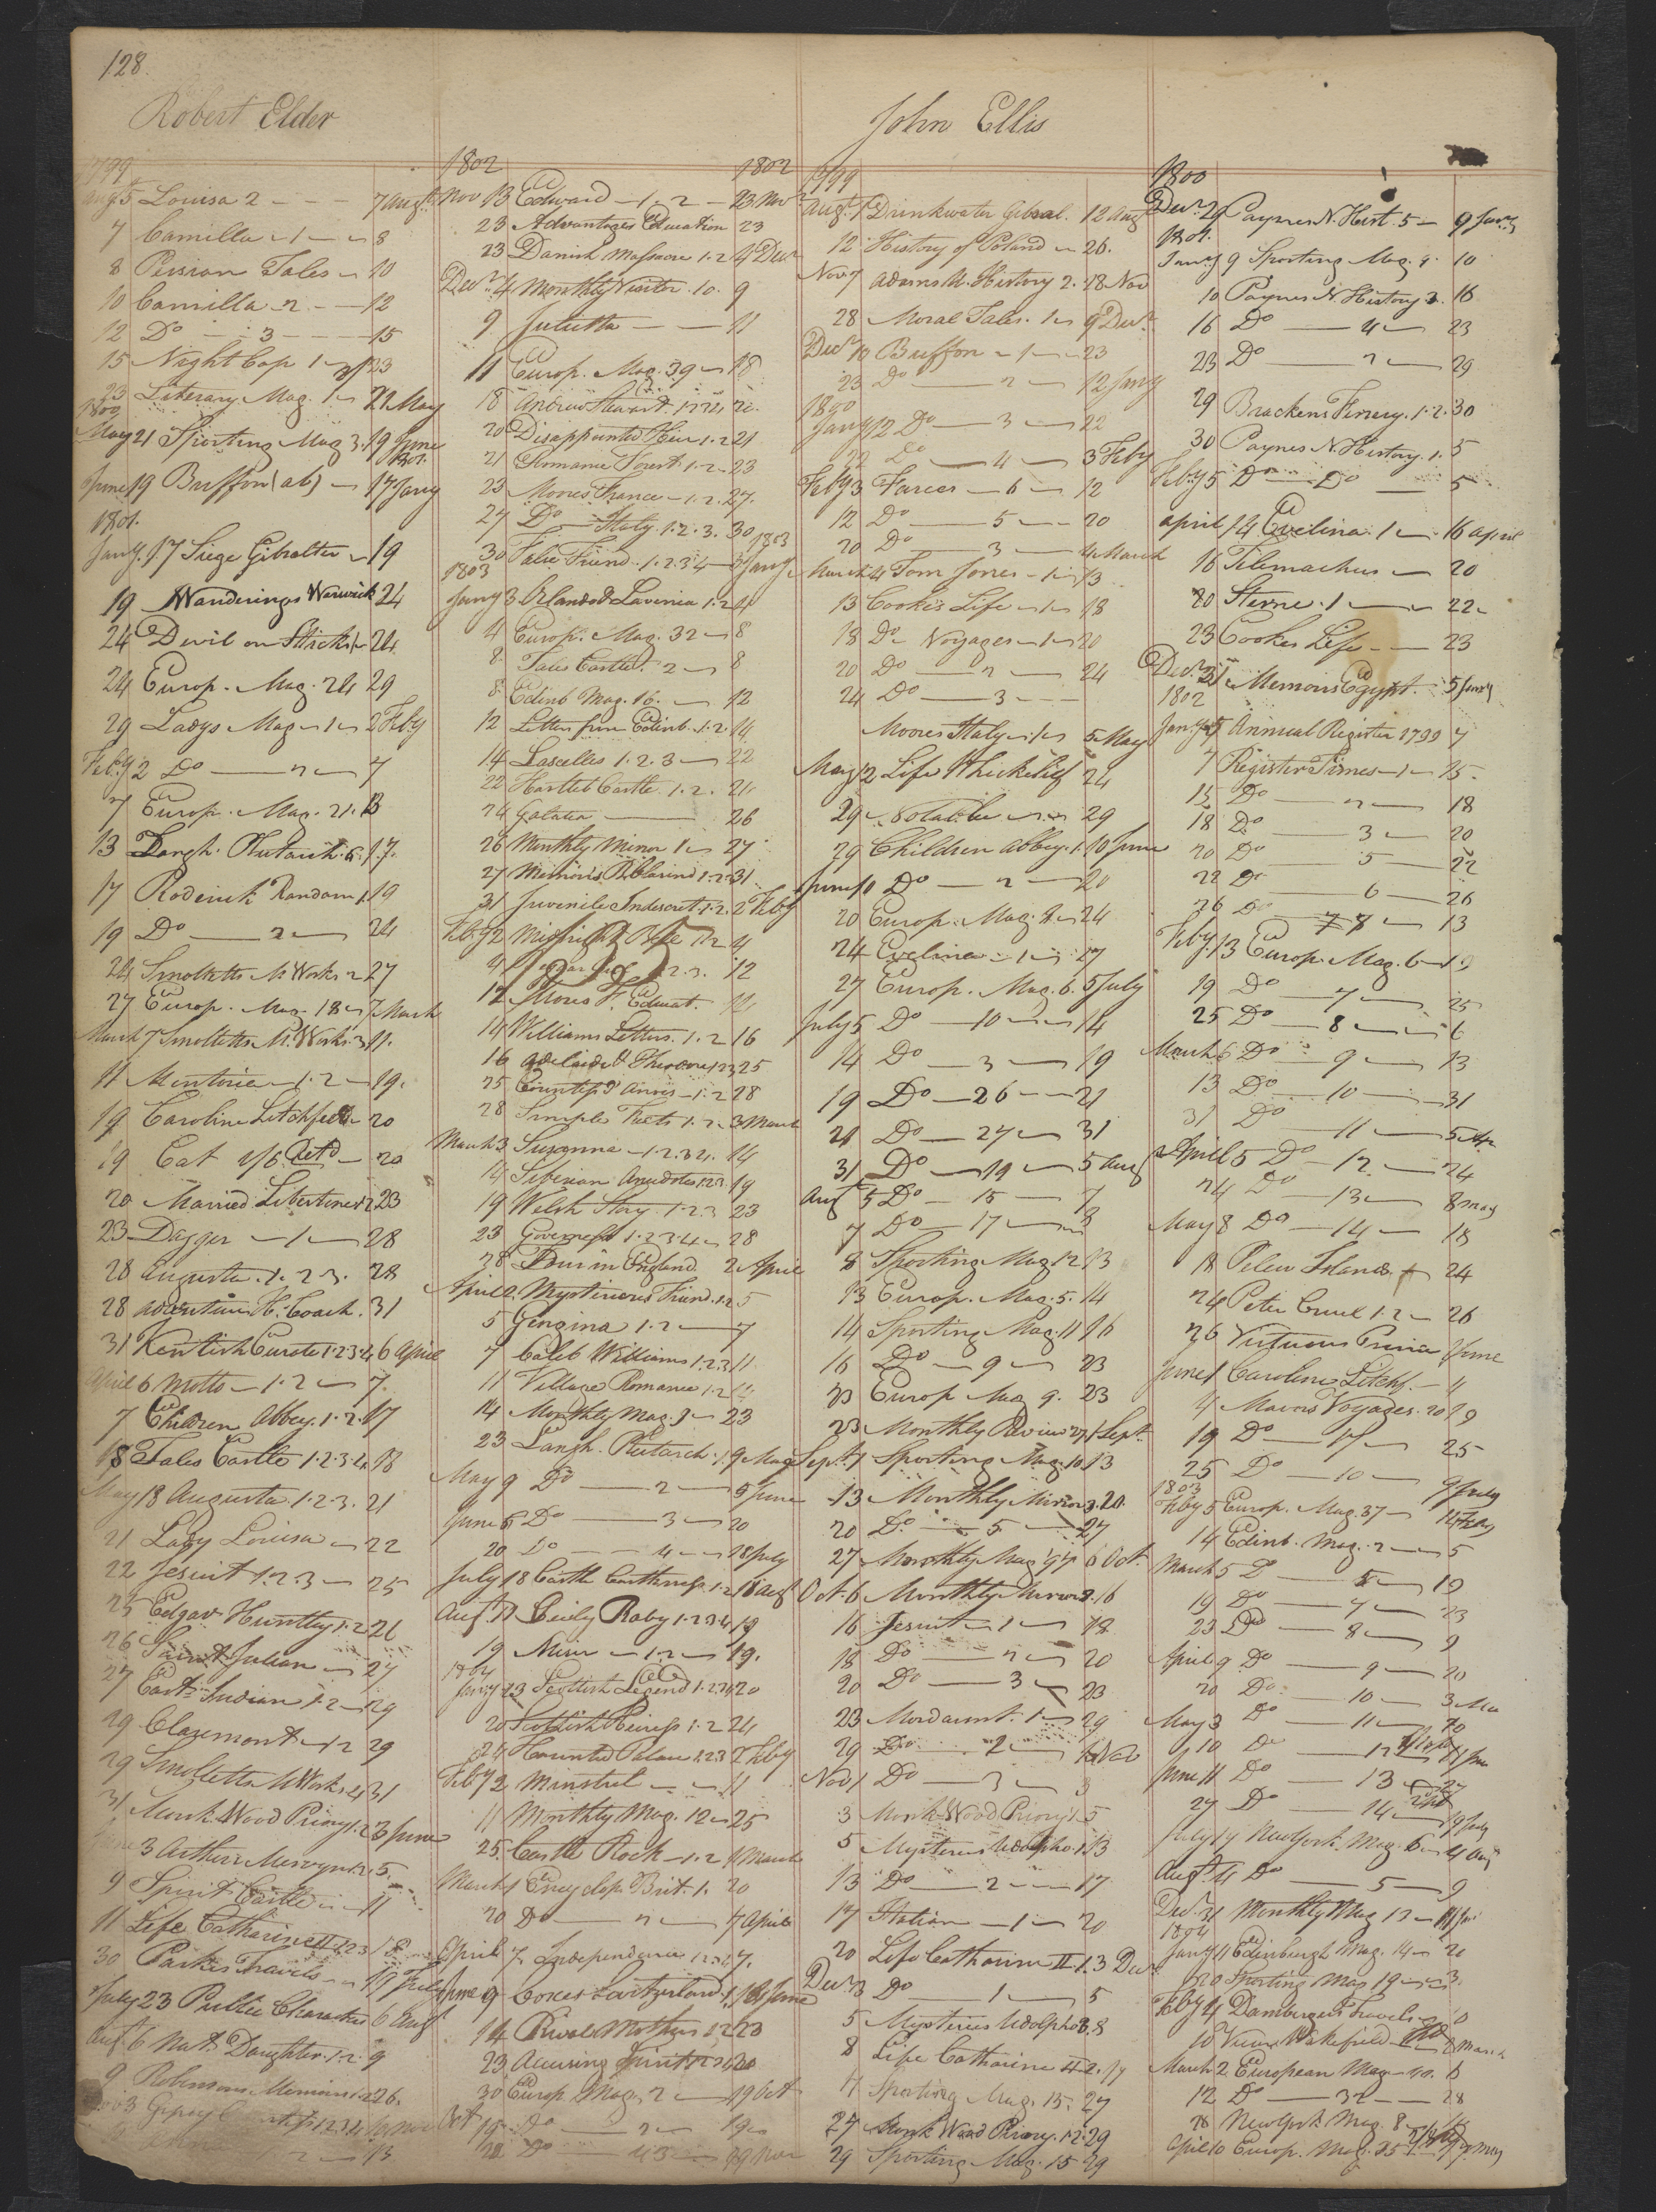 128.
Robert Elder
1799
Augt 5 Louisa 2 - - - 7 Augt
7 Camilla - 1 - - 8
8 Persian Tales - 10
10 Camilla - 2 - - 12
12 Do - 3 - - - 15
15 Night Cap 1 - 23
23 Literary Mag. 1 - 22 May
1800
May 21 Sporting Mag 3. 19 June
1801.
June 19 Buffon (ab) - 17 Jany
1801.
Jany. 17 Siege Gibralter - 19
19 Wanderings Warwick 24
24 Devil on Sticks 1 - 24
24 Europ. Mag. 24 29
29 Ladys Mag - 1 - 2 Feby
Feby 2 Do - 2 - 7
7 Europ. Mag. 21. 13
13 Langh. Plutarch. 6. 17.
17 Roderick Random 1 19
19 Do - 2 - 24
24 Smolletts M. Works 2 27
27 Europ. Mag. 18 - 7 March
March 7 Smolletts M. Works. 3 11.
11 Mentoria - 1. 2 - 19.
19 Caroline Litchfield - 20
19 Cat 1/6 Retd - 20
20 Married Libertine 1. 2 23
23 Dagger - 1 - 28
28 Augusta. 1. 2 3. 28
28 Adventures H. Coach. 31
31 Kentish Curate 1. 2. 3. 4 6 April
April 6 Motto - 1. 2 - 7.
7 Children Abbey. 1. 2. 17
18 Tales Castle 1. 2. 3. 4 18
May 18 Augusta. 1. 2. 3. 21
21 Lady Louisa - 22
22 Jesuit 1. 2. 3 - 25
25 Edgar Huntley 1. 2 26
26 Saint Julian - 27
27 East Indian 1. 2 - 29
29 Claremont - 1. 2 29
29 Smolletts M Works 4 31
31 Munk. Wood Priory 1. 2 3 June
June 3 Arthur Mervyn 1. 2. 5
9 Spirit Castle - 11
11 Life Catharine II 1 2 3 18
30 Parkes Travels - 17 July
July 23 Public Characters 6 Augt
Augt 6 Nat. Daughter. 1. 2. 9
9 Robinsons Memoirs 1. 2 26.
3 Gipsey Countess 1. 2. 3. 4
2 - 13
1802 1802
Nov 13 Edward - 1. 2 - 23 Novr
23 Advantages Education 23
23 Danish Massacre 1. 2 4 Decr
Decr 4 Monthly Visitor. 10. 9
9 Julietta - - 11
11 Europ. Mag. 39 - 18
18 Andrew Stewart. 1 2 20.
20 Disappointed Heir. 1. 2 21
21 Romance Forest. 1. 2 - 23
23 Moores France - 1. 2. 27.
27 Do Italy. 1. 2. 3. 30
1803
30 False Friend. 1. 2. 3. 4 - 3 Jany
1803
Jany 3 Orlando & Lavinia 1. 2 4
4 Europ. Mag. 32 - 8
8 Tales Castle. 2 - 8
8 Edinb Mag. 16. - 12
12 Letters from Edinb. 1. 2. 14
14 Lascelles 1. 2. 3 - 22
22 Hartleb Castle. 1. 2. 24
24 Galatea - 26
26 Monthly Mirror 1 - 27
27 Memoirs P. Clarind 1. 2. 31
31 Juvenile Indiscret. 1. 2. 2 Feby
Feby 2 Midnight Bell 1. 2 4
4 1. 2. 3. 12
12 Mores F. Educat. 14
14 Williams Letters. 1. 2 16
16 Adelaide & Theodore 1 2 3 25
25 Countess d'Anois - 1. 2 28
28 Simple Facts 1. 2 - 3 March
March 3 Suzanna - 1. 2. 3 4. 14
14 Siberian Anecdotes 1. 2. 3. 19
19 Welsh Story. 1. 2. 3 23
23 Governess 1. 2. 3. 4 - 28
28 Tour in England. 2 April
April 2 Mysterious Friend. 1. 2 5
5 Georgina 1. 2 - 7
7 Caleb Williams 1. 2. 3 11
11 Village Romance 1. 2 14
14 Monthly Mag. 9 - 23
23 Langh. Plutarch. 1. 9 May
May 9 Do - 2 - 5 June
June 5 Do - 3 - 20
20 Do - 4 - 18 July
July 18 Castle Caithness. 1. 2 18 Augt
Augt 17 Cecily Raby 1. 2. 3 4 19
19 Miser - 1. 2 - 19.
1804
Jany 13 Scottish Legend 1. 2. 3. 4 20
20 Scottish Heiress 1. 2 24
24 Haunted Palace 1. 2 3 2 Feby
Feby 2 Minstrel - - 11
11 Monthly Mag. 12 - 25
25 Castle Rock - 1. 2 1 March
March 1 Encyclop. Brit. 1. 20
20 Do - 2 - 7 April
April 7 Independance 1. 2 7.
June 9 Coxes Switzerland 1. 14 June
14 Rival Mothers 1. 2 23
23 Accusing Spirit 1 2 3
30 Europ. Mag. 2 - 19 Oct
Oct 19 Do - 2 - 19
22 Do 43 - 29 Nov
John Ellis
1799
Augt. 1 Drinkwater Gibral. 12 Augt
12 History of Poland - 26.
Nov 7 Adams U. History 2. 28 Nov
28 Moral Tales. 1 - 9 Decr
Decr 10 Buffon - 1 - 23
23 Do - 2 - 12 Jany
1800
Jany 12 Do - 3 - 22
22 Do - 4 - 3 Feby
Feby 3 Farces - 6 - 12
12 Do - 5 - - 20
20 Do - 3 - 4 March
March 4 Tom Jones - 1 - 13
13 Cookes Life - 1 - 18
18 Do Voyages - 1 - 20
20 Do - 2 - 24
24 Do - 3 - -
Moores Italy - 1 - 5 May
May 12 Life Thickness 24
29 Notable - 29
29 Children Abbey. 1. 10 June
June 10 Do - 2 - 20
20 Europ. Mag. 8 - 24
24 Evelina - 1 - 27
27 Europ. Mag. 6. 5 July
July 5 Do - 10 - 14
14 Do - 3 - 19
19 Do - 26 - - 21
21 Do - 27 - 31
31 Do - 19 - 5 Augt
Augt 5 Do - 15 - 7
7 Do - 17 - 8
8 Sporting Mag 12 13
13 Europ. Mag. 5. 14
14 Sporting Mag. 11 16
16 Do - 9 - 23
23 Europ Mag 9. 23
23 Monthly Review 27 1 Sept.
Sept. 1 Sporting Mag. 10 13
13 Monthly Mirror 3. 20.
20 Do. - 5 - 27
27 Monthly Mag 6 Oct.
Oct. 6 Monthly Mirror 2. 16
16 Jesuit - 1 - 18
18 Do - 2 - 20
20 Do - 3 - 23
23 Mordaunt. 1 - 29
29 Do - 2 - 1 Nov
Nov 1 Do - 3 - 3
3 Monk-Wood Priory 1. 5
5 Mysteries Udolpho. 1. 13
13 Do - 2 - - 17
17 Italian - 1 - 20
20 Life Catharine II. 1. 3 Decr
Decr 3 Do - 1 - 5
5 Mysteries Udolpho 3. 8
8 Life Catharine II 2. 17
17 Sporting Mag. 15. 27
27 Monk Wood Priory. 1. 2. 29
29 Sporting Mag. 15 29
1800
Decr. 29 Paynes N. Hist. 5 - 9 Jany
1801.
Jany 9 Sporting Mag. 9. 10
10 Paynes N. History 3. 16
16 Do - 4 - 23
23 Do - 2 - 29
29 Brackens Farriery. 1. 2. 30
30 Paynes N. History. 1. 5
Feby 5 Do - Do - 5
April 14 Evelina. 1 - 16 April
16 Telemachus - 20
20 Sterne. 1 - 22
23 Cookes Life - - 23
Decr. 31 Memoirs Egypt. 5 Jany
1802
Jany 5 Annual Register 1799 7
7 Register Times - 1 - 15.
15 Do - 2 - 18
18 Do - 3 - 20
20 Do - 5 - 22
22 Do - 6 - 26
26 Do - 7 8 - 13
Feby. 13 Europ. Mag. 6 - 19
19 Do - 7 - 25
25 Do - 8 - 6
March 6 Do - 9 - 13
13 Do - 10 - 31
31 Do - 11 - 5 Apr
April 5 Do - 12 - 24
24 Do - 13 - 8 May
May 8 Do - 14 - 18
18 Pelew Islands - 24
24 Peter Cruel 1. 2 - 26
26 Virtuous Prince 1 June
June 1 Caroline Litchf. - 4
4 Mavors Voyages. 20 19
19 Do - 17 - 25
25 Do - 10 - 9 July
1803
Feby 5 Europ. Mag. 37 - 14 Feby
14 Edinb. Mag. 2 - 5
March 5 Do - 5 - 19
19 Do - 7 - 23
23 Do - 8 - 9
April 9 Do - 9 - 20
20 Do - 10 - 3 May
May 3 Do - 11 - 10
10 Do - 12 - 11 June
June 11 Do - 13 - 27
27 Do - 14 - 19 July
July 19 New York Mag. 6 - 4 Aug
Augt. 4 Do - 5 - 9
Decr. 31 Monthly Mag 12 - 11 Jan
1804
Jany 11 Edinburgh Mag. 14 - 20
20 Sporting Mag 19 - 3.
Feby 4 Dambergers Travels - 10
10 Vicar Wakefield 2 March
March 2 European Mag 40. 6
12 Do - 32 - 28
28 New York Mag. 8
April 10 Europ. Mag. 25 May